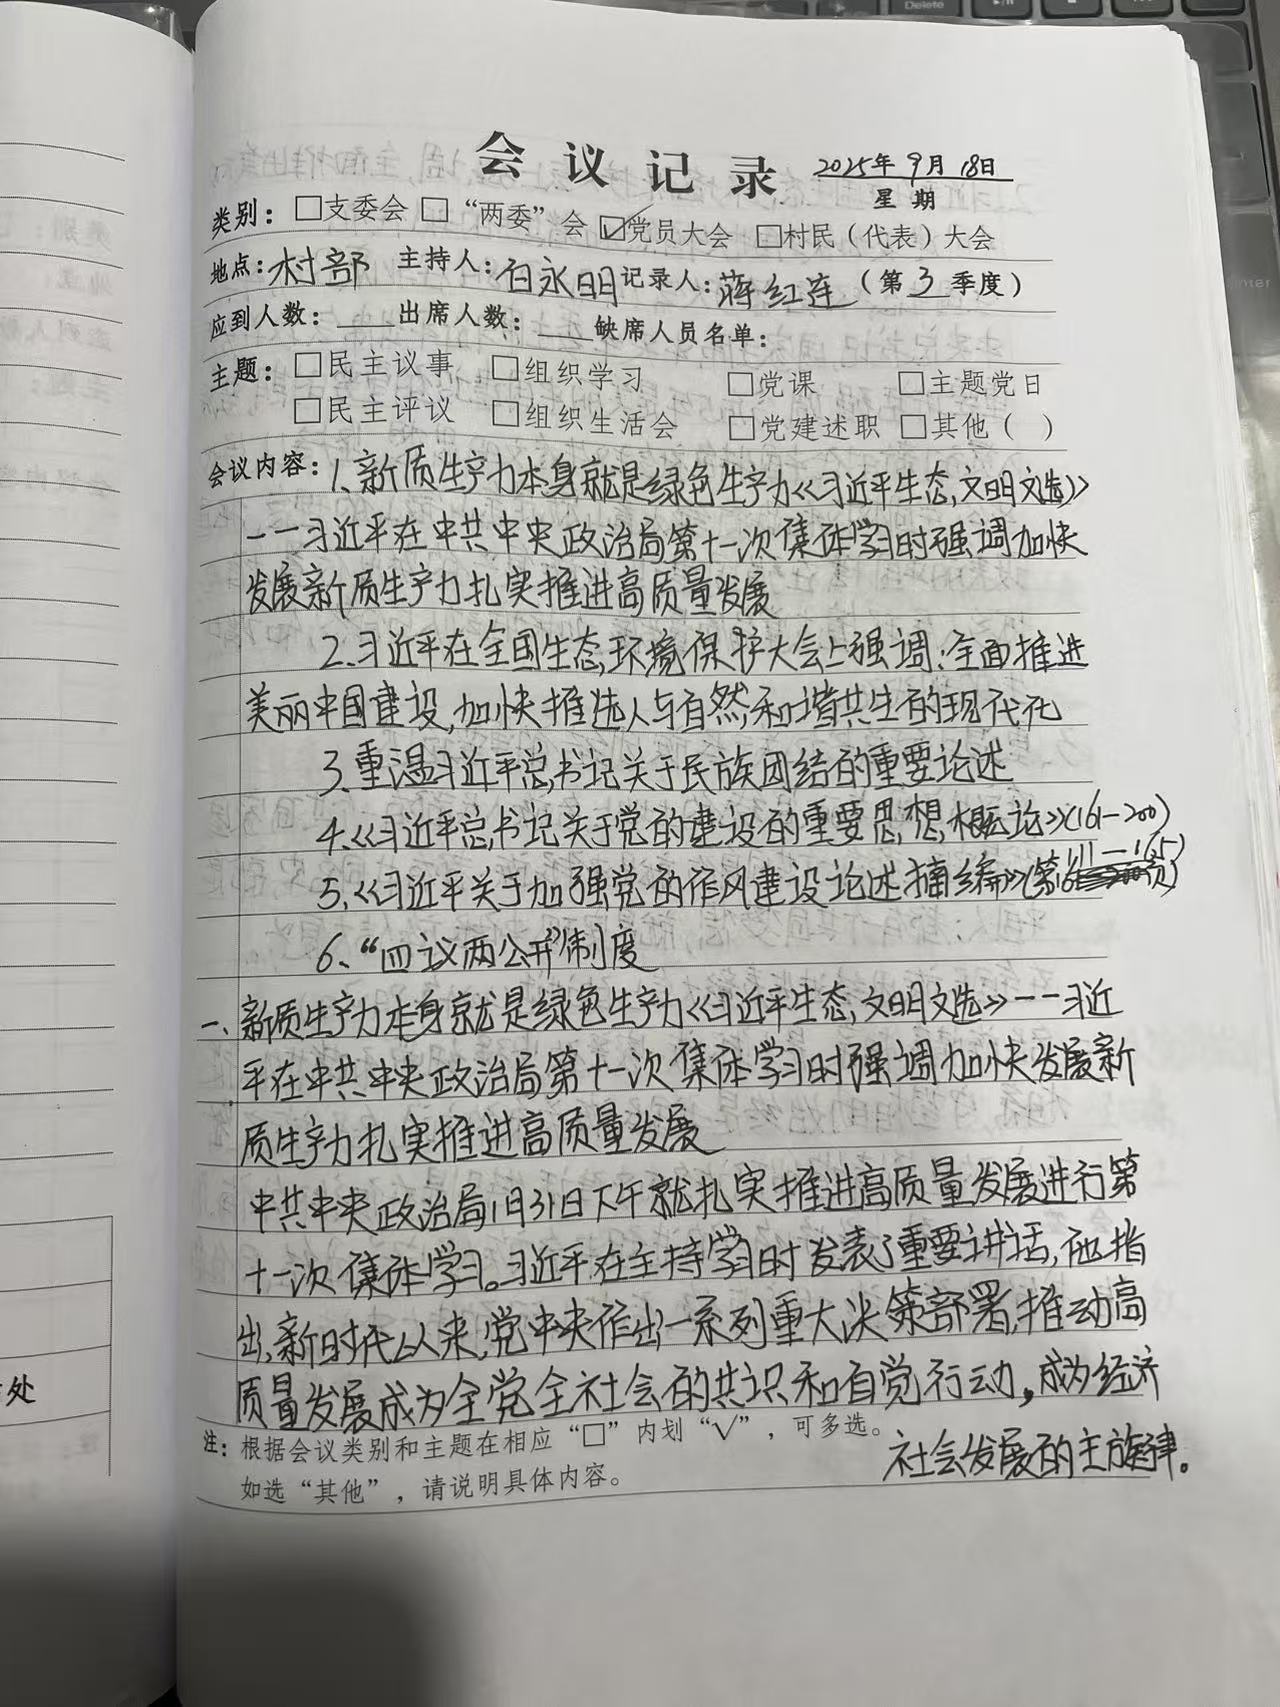 Delete
会议记录 2025年9月18日
星期
类别：□支委会 □“两委”会 ☑党员大会 □村民（代表）大会
地点：村部 主持人：白永明 记录人：蒋红连（第3季度）
应到人数：___出席人数：___缺席人员名单：
主题：□民主议事 □组织学习 □党课 □主题党日
□民主评议 □组织生活会 □党建述职 □其他（ ）
会议内容：1、新质生产力本身就是绿色生产力《习近平生态文明文选》
——习近平在中共中央政治局第十一次集体学习时强调加快
发展新质生产力扎实推进高质量发展
2、习近平在全国生态环境保护大会上强调：全面推进
美丽中国建设，加快推进人与自然和谐共生的现代化
3、重温习近平总书记关于民族团结的重要论述
4、《习近平总书记关于党的建设的重要思想概论》（161—200）
5、《习近平关于加强党的作风建设论述摘编》（第
6、“四议两公开”制度
一、新质生产力本身就是绿色生产力《习近平生态文明文选》——习近
平在中共中央政治局第十一次集体学习时强调加快发展新
质生产力扎实推进高质量发展
中共中央政治局1月31日下午就扎实推进高质量发展进行第
十一次集体学习。习近平在主持学习时发表了重要讲话，他指
出，新时代以来，党中央作出一系列重大决策部署，推动高
质量发展成为全党全社会的共识和自觉行动，成为经济
社会发展的主旋律。
注：根据会议类别和主题在相应“□”内划“√”，可多选。
如选“其他”，请说明具体内容。
处